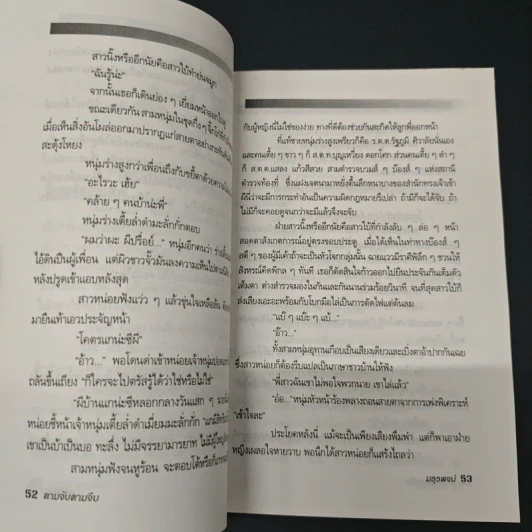 สาวนิ้งหรืออีกนัยคือสาวไบ้ทำย่นจมูก
"ฉันรู้น่ะ"
จากนั้นเธอก็เดินย่อง ๆ เยี่ยมหน้าออกไปดู
ขณะเดียวกัน สามหนุ่มในชุดกึ่ง ๆ
เมื่อเห็นสิ่งอันโผล่ออกมาปรากฏแก่สายตาอย่างกะทันหัน
สะดุ้งโหยง
หนุ่มร่างสูงกว่าเพื่อนถึงกับขยี้ตาด้วยความ
"อะไรวะ เฮ้ย"
"คล้าย ๆ คนบ้าน่ะพี่"
หนุ่มร่างเตี้ยล่ำดำมะลักกั๊กตอบ
"ผมว่าผะ ผีปรื๋อย์..." หนุ่มอีกคนว่า
ไอ้ดินเป็นผู้เพื่อน แต่ผิวขาวจั๊วมันลงความเห็นไปตามนิสัย
หลังปรูดเข้าแอบหลังสุด
สาวหน่อยฟังแว่ว ๆ แล้วขุ่นใจเหลือล้น
มายืนเท้าเอวประจัญหน้า
"โคตรแกน่ะซีผี"
"อ้าว..." พอโดนด่าเข้าหน่อยเจ้าหนุ่ม
ถลันขึ้นเถียง "ก็ใครจะไปตรัสรู้ได้ว่าใช่หรือไม่ใช่"
"ผีบ้านแกน่ะซีหลอกกลางวันแสก ๆ
หน่อยชี้หน้าเจ้าหนุ่มเตี้ยล่ำดำเมี่ยมมะลักกั๊ก
เขาเป็นบ้าเป็นบอ ทะลึ่ง ไม่มีจรรยามารยาท
สามหนุ่มฟังจนหูร้อน จะตอบโต้หรือก็
52 ตามจับตามจีบ
กับผู้หญิงนี่ไม่ใช่ของง่าย ทางที่ดีต้องช่วยกันสะกิดให้ลูกพี่ออกหน้า
ที่แท้ชายหนุ่มร่างสูงเพรียวก็คือ ร.ต.ต.รัฐภูมิ ศิวาลัยนั่นเอง
และคนเตี้ย ๆ ขาว ๆ ก็ ส.ต.ต.บุญเหวียง ดอกโศก ส่วนคนเตี้ย ๆ ดำ ๆ
ก็ ส.ต.ต.แสลง แก้วสีสวย สามตำรวจบวมส์ ๆ บ๊องส์ ๆ แห่งสถานี
ตำรวจท้องที่ ซึ่งแฝงเจตนามาหยั่งตื้นลึกหนาบางของสำนักทรงเจ้าเข้า
ผีนี้ว่าจะมีการกระทำอันเป็นความผิดกฎหมายรึเปล่า ถ้ามีก็จะได้จับ ถ้า
ไม่มีก็จะคอยดูจนกว่าจะมีแล้วจึงจะจับ
ฝ่ายสาวนิ้งหรืออีกนัยคือสาวไบ้ที่กำลังลับ ๆ ล่อ ๆ หน้า
สอดตาสังเกตการณ์อยู่ตรงขอบประตู เมื่อได้เห็นในท่าทางบ๊องส์ ๆ
สตี ๆ ของผู้มีเค้าถ้าจะเป็นหัวใจกลุ่มนั้น ฉายแววมีราคีพิลึก ๆ ชวนให้
สังหรณ์คิดพิกล ๆ ทันที เธอก็ตัดสินใจก้าวออกไปยืนประจันกันเต็มตัว
เต็มตา ต่างสำรวจมองในกันและกันนานร่วมร้อยวินาที จนที่สุดสาวไบ้ก็
ส่งเสียงเอะอะพร้อมกับโบกมือไล่เป็นการตัดไฟแต่ต้นลม
"แบ้ ๆ แบ๊ะ ๆ แบ้..."
"อ๊าว..."
ทั้งสามหนุ่มอุทานเกือบเป็นเสียงเดียวและเบิ่งตาอ้าปากกันเฉย
ซึ่งสาวหน่อยก็ต้องรีบแปลเป็นภาษาชาวบ้านให้ฟัง
"พี่สาวฉันเขาไม่พอใจพวกนาย เขาไล่แล้ว"
"อ๋อ..." หนุ่มหัวหน้าร้องพลางถอนสายตาจากการเพ่งพิเคราะห์
"เข้าใจละ"
ประโยคหลังนี้ แม้จะเป็นเพียงเสียงพึมพำ แต่ก็พาเอาฝ่าย
หญิงเผลอใจหายวาบ พอนึกได้สาวหน่อยก็แสร้งไถลว่า
มธุรพจน์ 53